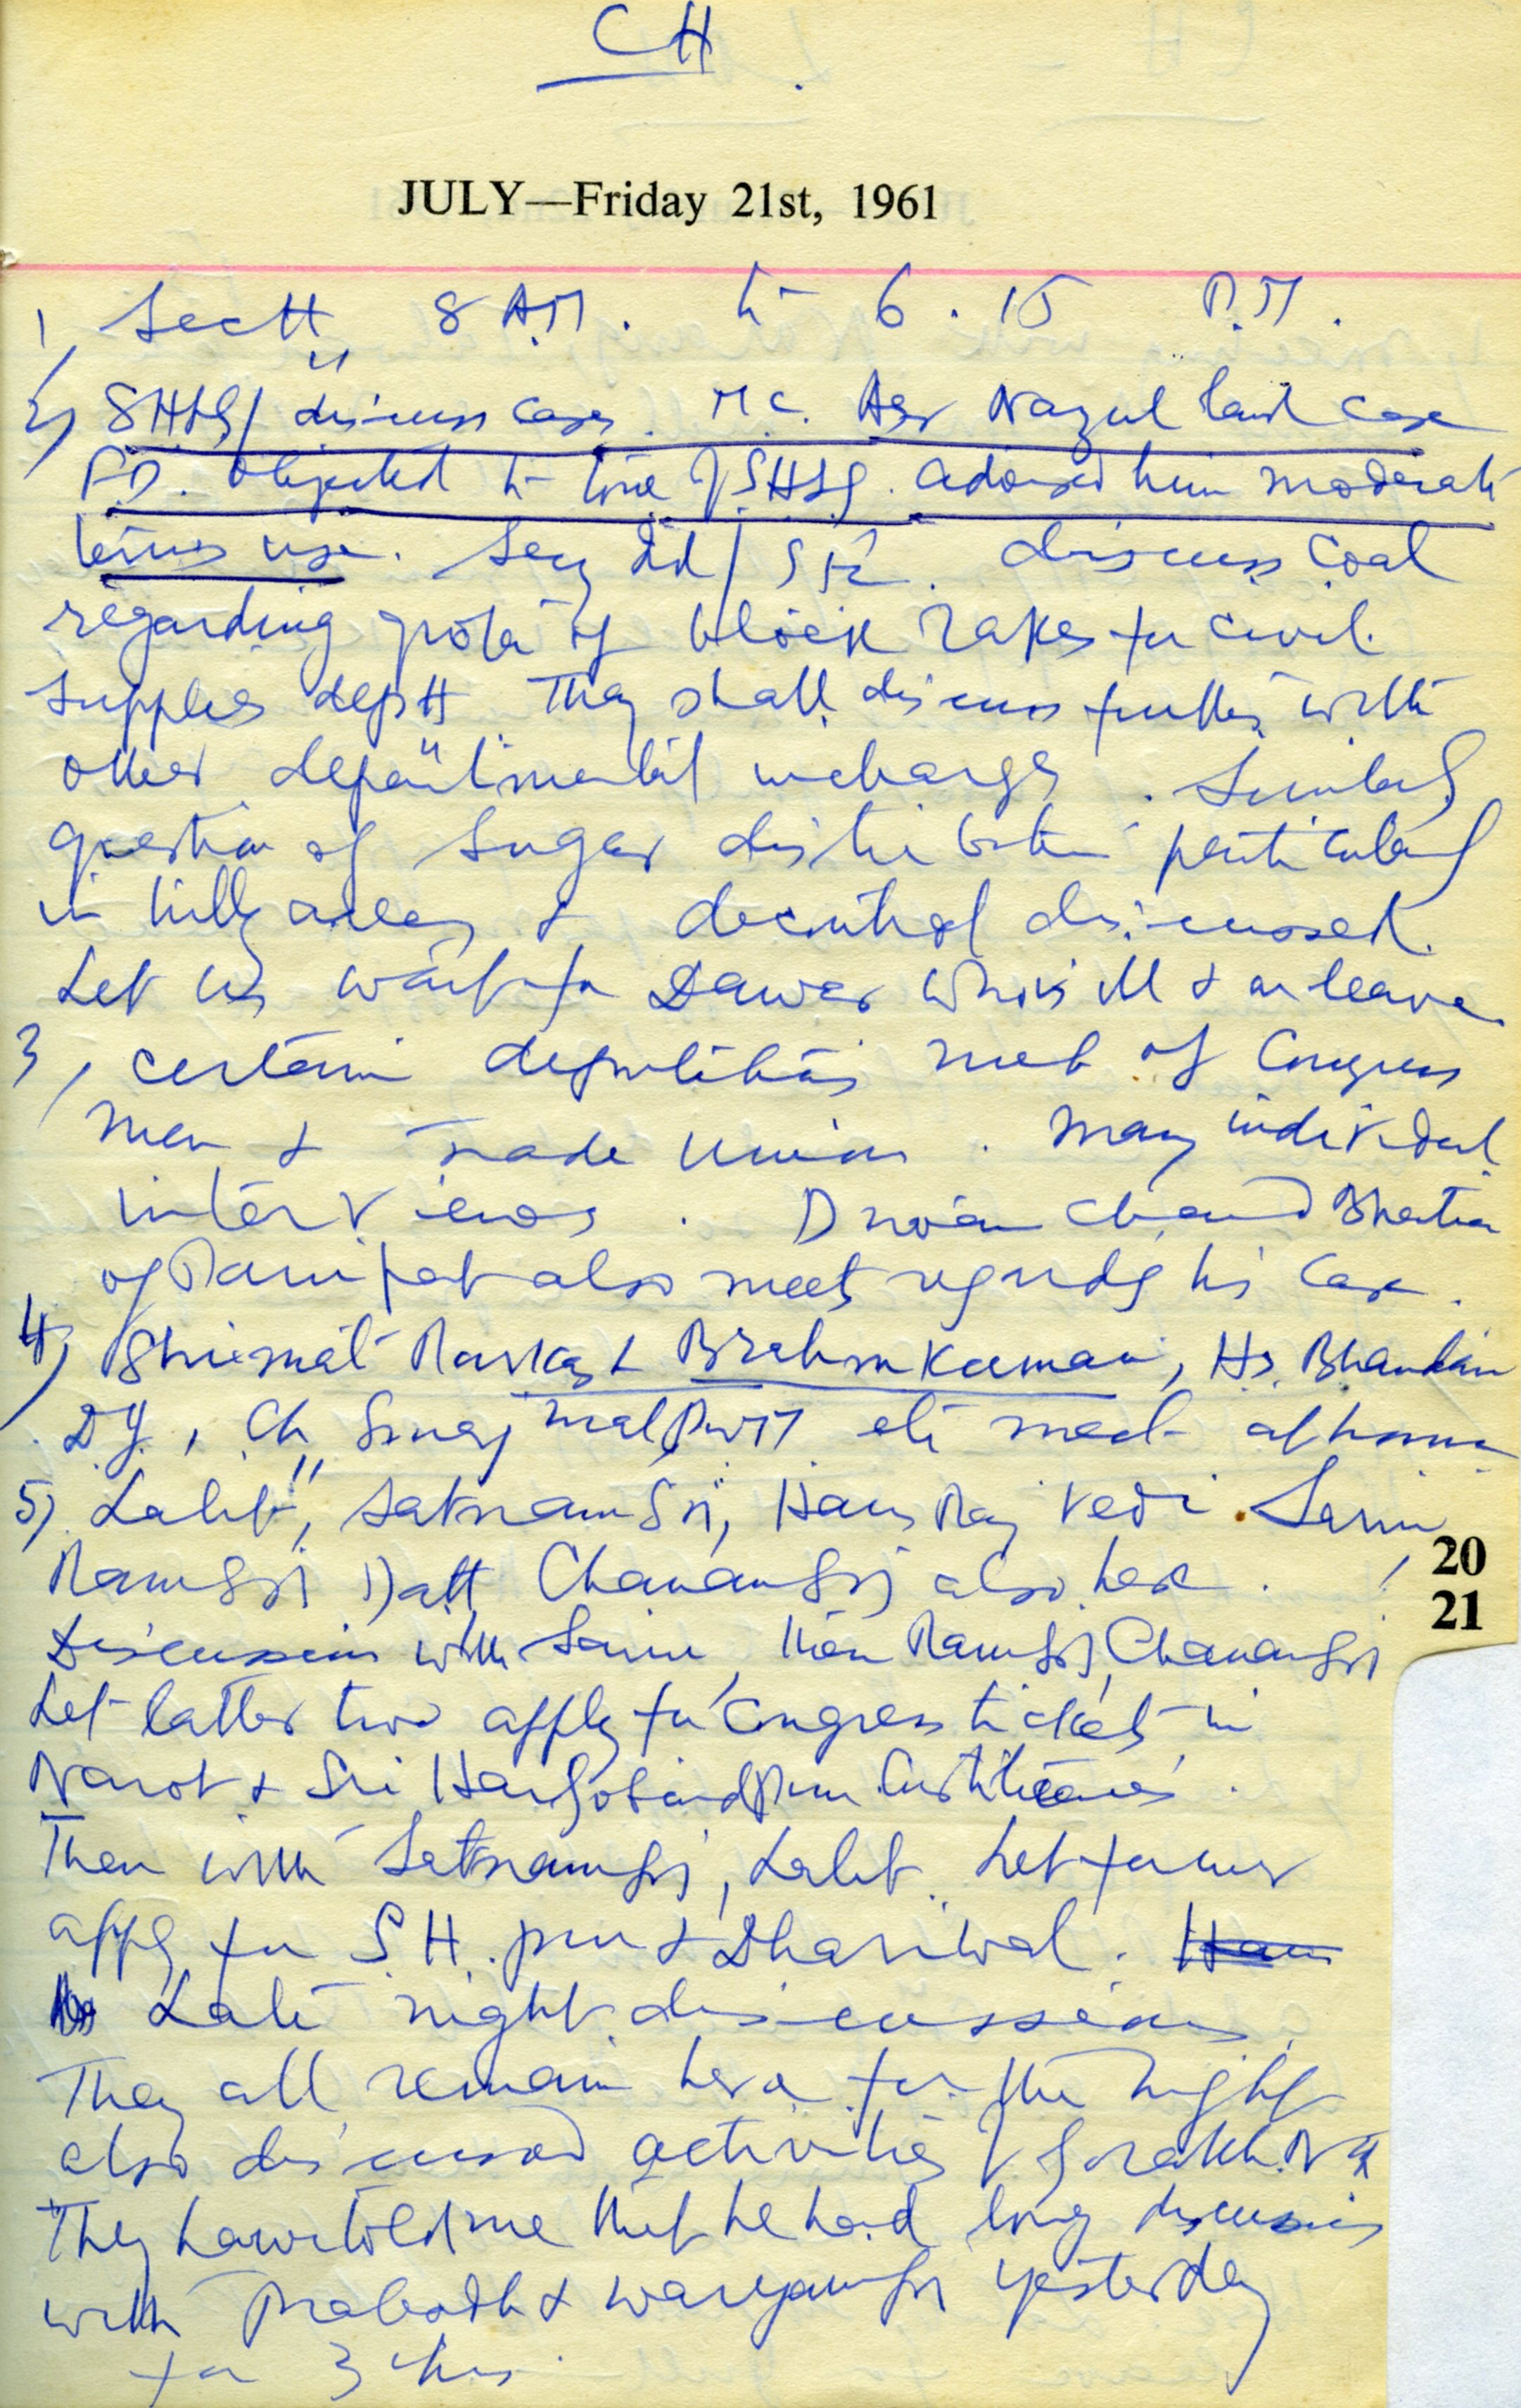 CH
JULY—Friday 21st, 1961
1, Sectt 8 AM. to 6.15 P.M.
2, SHLG/ discuss cases. M.C. Asr Nazul land case
F.D. objected to tone of SHLG. advised him moderate
terms use. Secy discuss coal
regarding of block rakes for civil
supplies deptt They shall discuss further with
other departmental incharge. Similarly
question of sugar distribution particularly
in hilly areas & decontrol discussed.
Let us wait for Dawar who is ill & on leave
3, certain deputations meet of Congress
men & Trade Union. Many individual
interviews. Diwan Chand Bhatia
of Panipat also meets regardg his case.
4, Shrimati & Brahm Kumari, Hs. Bhandari
D.G., Ch Suraj Mal PWM etc meet afternoon
5, Lalit, Satnam Sgj, Hans Raj Vedi. Sarin
Ram Sgj Datt Chanan Sgj also here.
Discussion with Sarin, then Ram Sgj, Chanan Sgj
Let latter two apply for Congress ticket in
Narot & Sri Hargobindpur Constituencies.
Then with Satnam Sgj, Lalit. Let former
apply for S.H. pur & Dhariwal. Hans
Late night discussions.
They all remain here for the night
also discussed activities of Gorakh Nath
They have told me that he had long discussions
with Prabodh & Waryam Sgj yesterday
for 3 hrs.
20
21